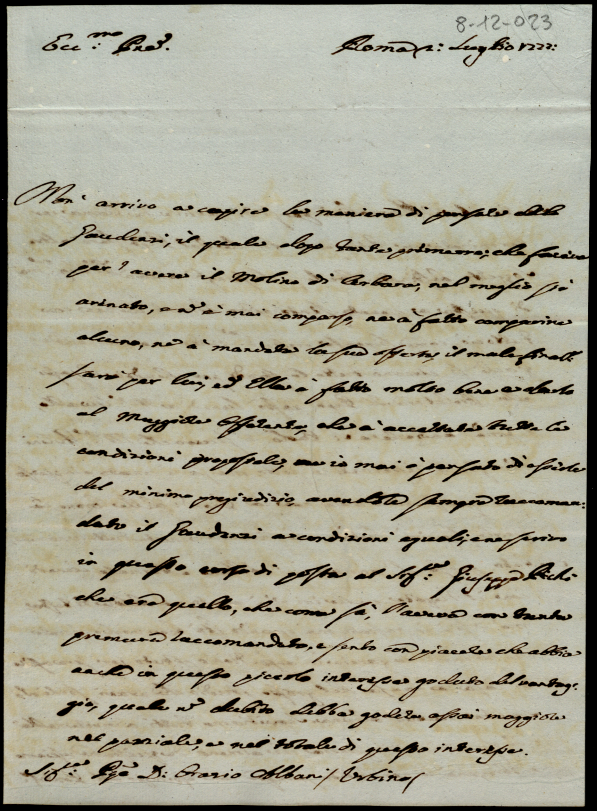 8-12-023
Ecc.mo Pne.
Roma 2: Luglio 1777:
Non arrivo a capire la maniera di pensare del
Gaudenzi, il quale dopo tante premure, che faceva
per avere il Molino di Barbara, nel meglio si è
arinato, e n. è mai comparso, ne à fatto comparire
alcuno, nè à mandata la sua offerta, il male finalm.
sarà per lui, ed Ella à fatto molto bene a darlo
al Maggiore Offerente, che à accettate tutte le
condizioni proposteli, ne io mai ò pensato di esserle
del minimo pregiudizio, avendole sempre raccoman:
dato il Gaudenzi a condizioni eguali, e ne scrivo
in questo corso di posta al Sig.re Giuseppe
che era quello, che come sà, l'aveva con tanta
premura raccomandato, e sento con piacere che abbia
anche in questo piccolo interesse goduto del vantag:
gio, quale n. dubito debba godere assai maggiore
nel parziale, e nel totale di questo interesse.
Sig.re D: Orazio Albani / Urbino /